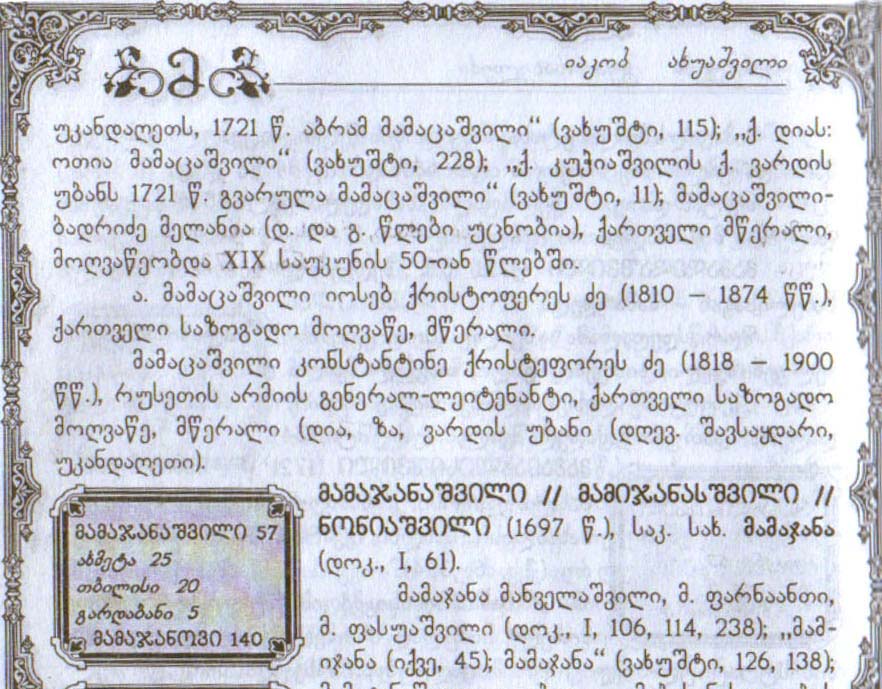 მ
იაკობ ახუაშვილი
უკანდაღეთს, 1721 წ. აბრამ მამაცაშვილი“ (ვახუშტი, 115); „ქ. დიას:
ოთია მამაცაშვილი“ (ვახუშტი, 228); „ქ. კუჭიაშვილის ქ. ვარდის
უბანს 1721 წ. გვარულა მამაცაშვილი“ (ვახუშტი, 11); მამაცაშვილი-
ბადრიძე მელანია (დ. და გ. წლები უცნობია), ქართველი მწერალი,
მოღვაწეობდა XIX საუკუნის 50-იან წლებში.
ა. მამაცაშვილი იოსებ ქრისტოფერეს ძე (1810 – 1874 წწ.),
ქართველი საზოგადო მოღვაწე, მწერალი.
მამაცაშვილი კონსტანტინე ქრისტეფორეს ძე (1818 – 1900
წწ.), რუსეთის არმიის გენერალ-ლეიტენანტი, ქართველი საზოგადო
მოღვაწე, მწერალი (დია, ზა, ვარდის უბანი (დღევ. შავსაყდარი,
უკანდაღეთი).
მამაჯანაშვილი // მამიჯანასშვილი //
ნონიაშვილი (1697 წ.), საკ. სახ. მამაჯანა
(დოკ., I, 61).
მამაჯანა მანველაშვილი, მ. ფარნაანთი,
მ. ფასუაშვილი (დოკ., I, 106, 114, 238); „მამ-
იჯანა (იქვე, 45); მამაჯანა“ (ვახუშტი, 126, 138);
მამაჯანაშვილი 57
ახმეტა 25
თბილისი 20
გარდაბანი 5
მამაჯანოვი 140